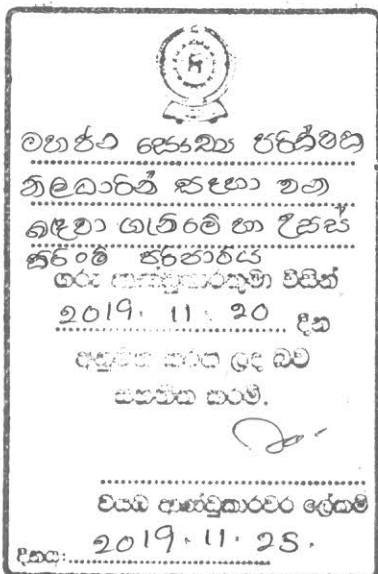 මහජන සෞඛ්‍ය පරීක්ෂක
නිලධාරින් සඳහා වන
බඳවා ගැනීමේ හා උසස්
කිරීමේ පරිපාටිය
ගරු ආණ්ඩුකාරතුමා විසින්
2019. 11. 20 දින
අනුමත කරන ලද බව
සහතික කරමි.
වයඹ ආණ්ඩුකාරවර ලේකම්
දිනය: 2019. 11. 25.